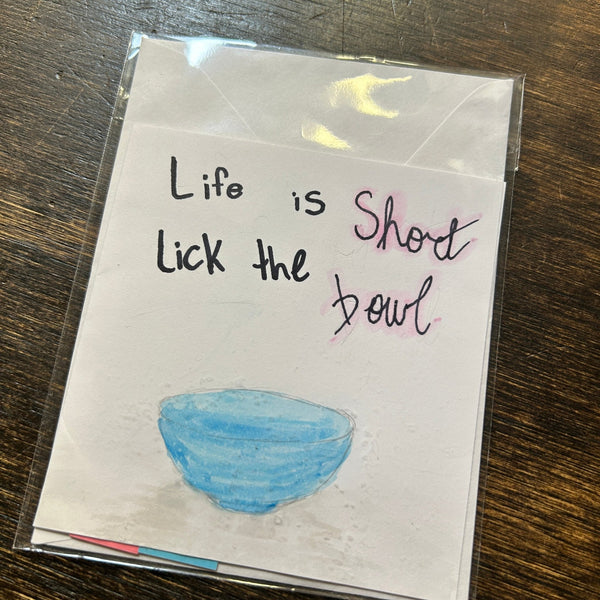 Life is Short
Lick the bowl